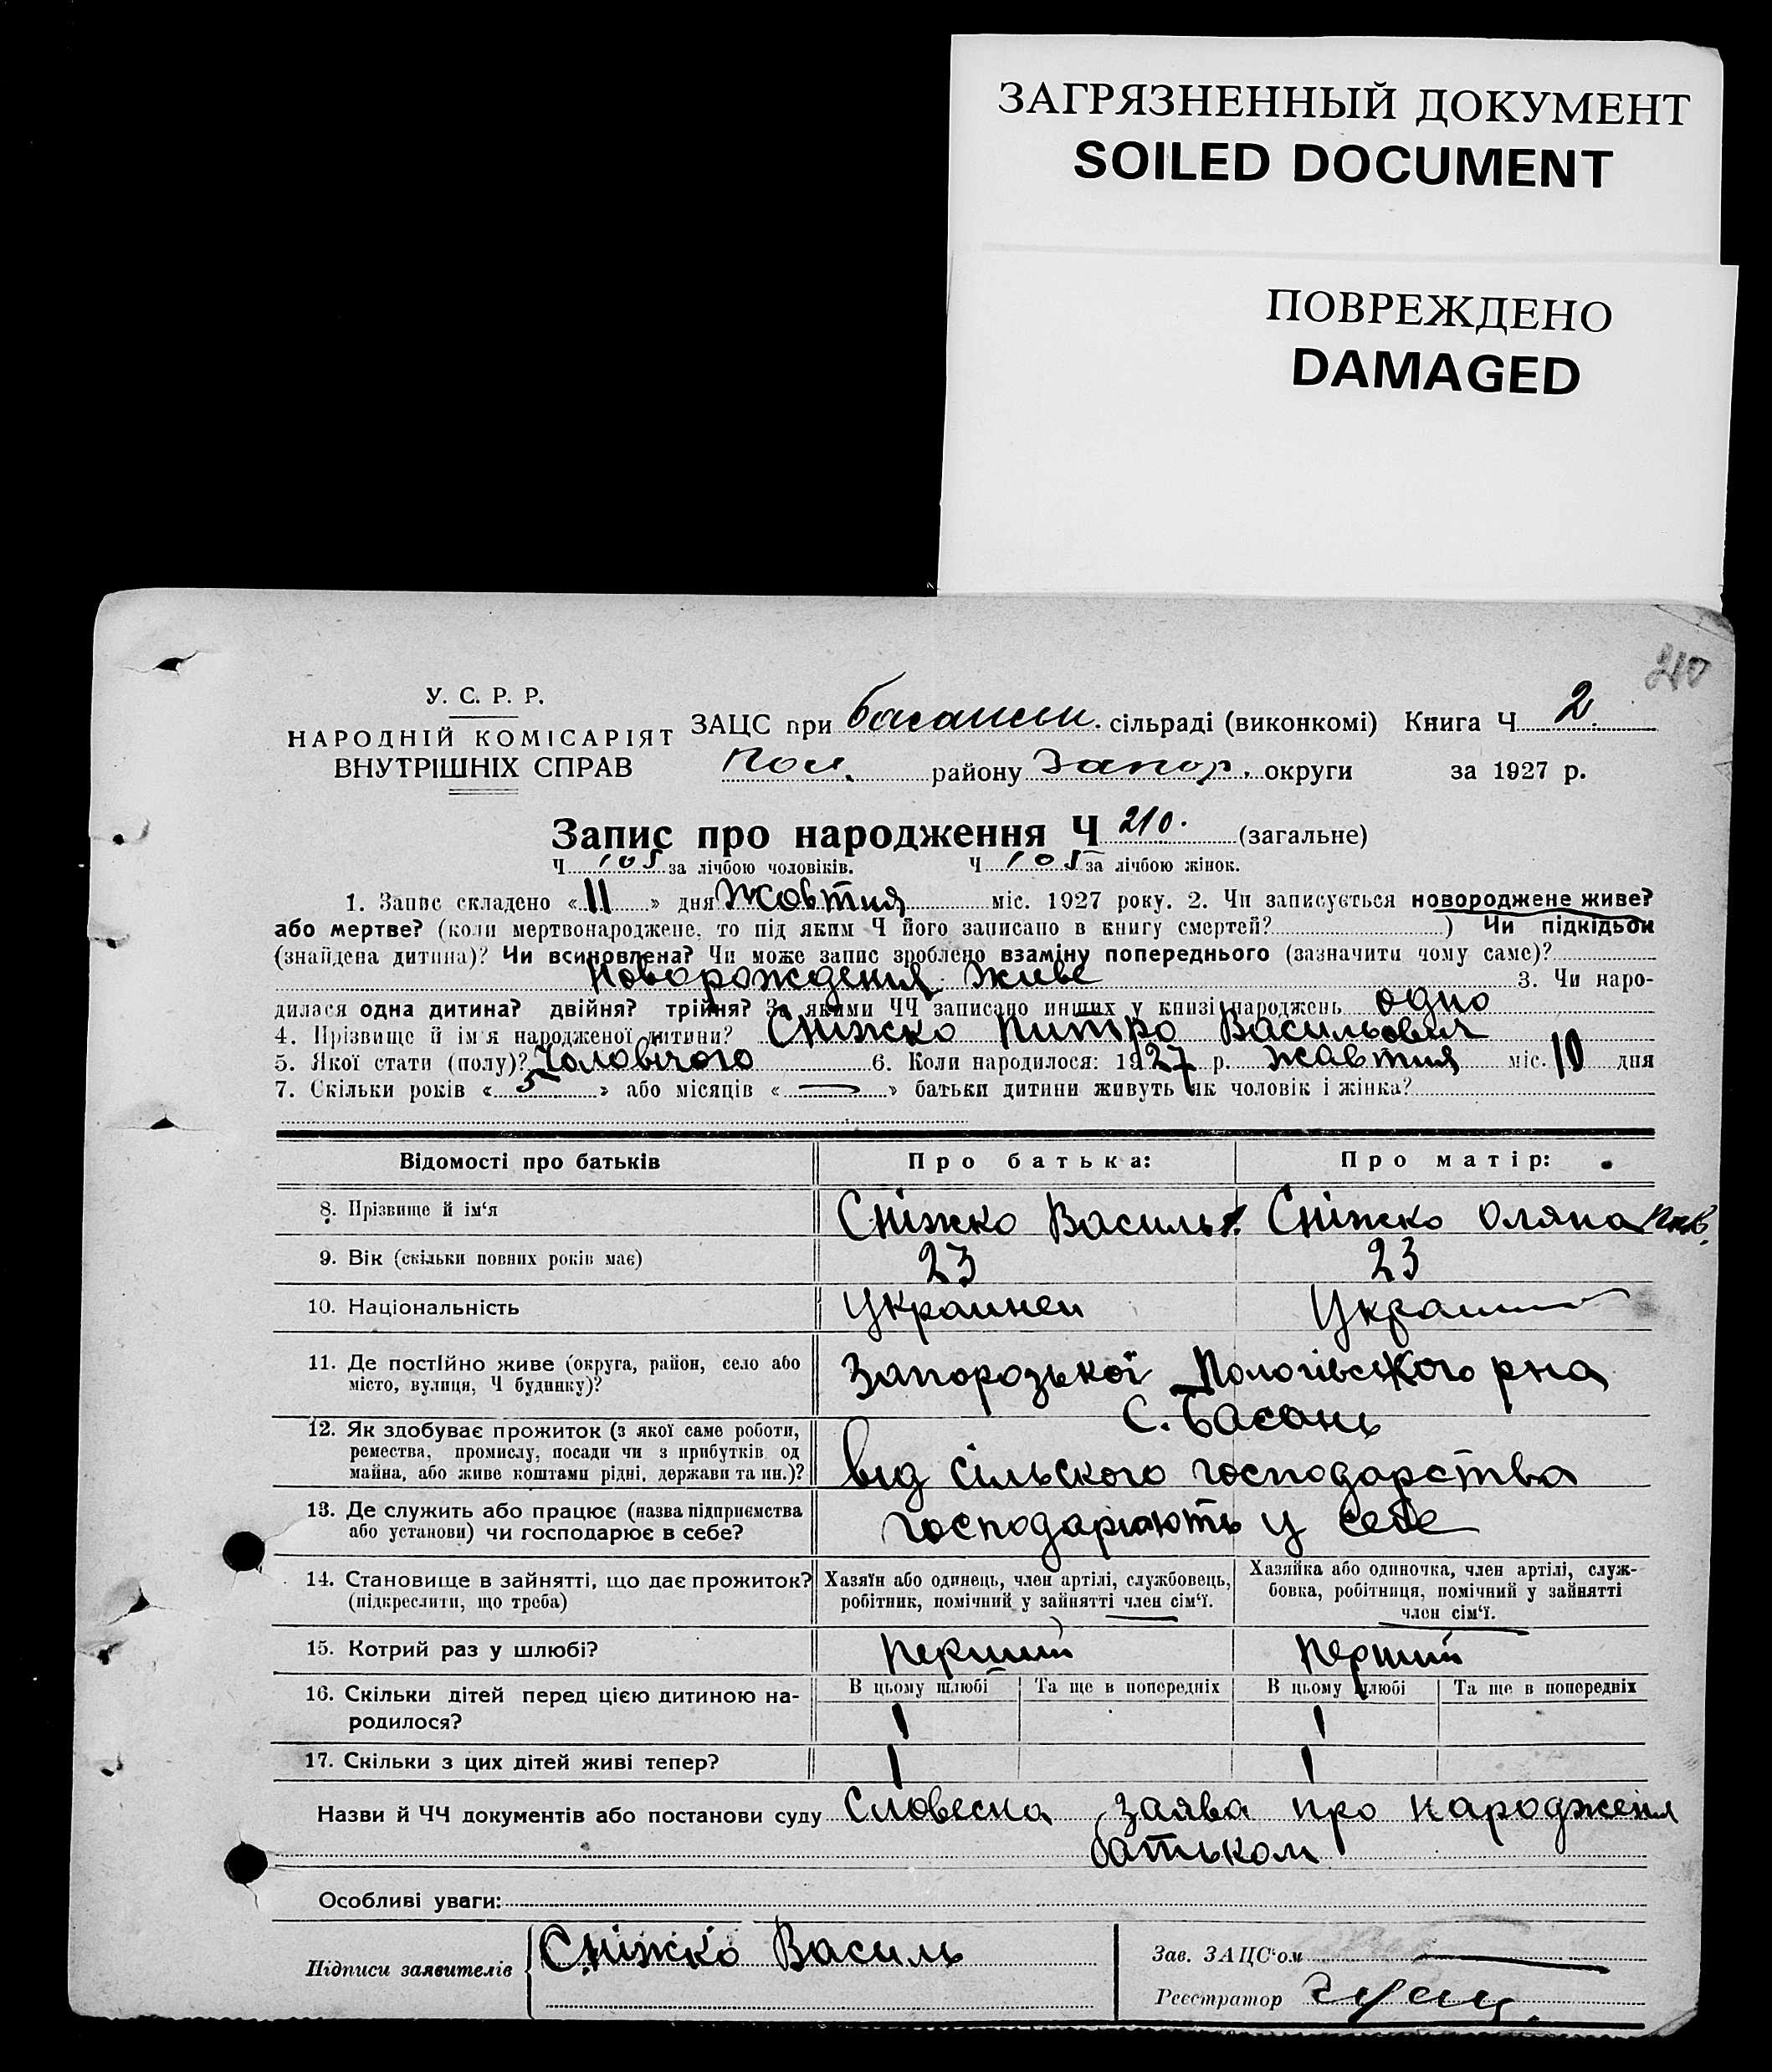 ЗАГРЯЗНЕННЫЙ ДОКУМЕНТ
SOILED DOCUMENT
ПОВРЕЖДЕНО
DAMAGED
210
У. С. Р. Р.
НАРОДНІЙ КОМІСАРІЯТ
ВНУТРІШНІХ СПРАВ
ЗАЦС при сільраді (виконкомі) Книга Ч 2.
Пол. району Запор. округи за 1927 р.
Запис про народження Ч 210. (загальне)
Ч 105 за лічбою чоловіків. Ч 105 за лічбою жінок.
1. Запис складено « 11 » дня Жовтня міс. 1927 року. 2. Чи записується новороджене живе?
або мертве? (коли мертвонароджене, то під яким Ч його записано в книгу смертей? ) Чи підкідьок
(знайдена дитина)? Чи всиновлена? Чи може запис зроблено взаміну попереднього (зазначити чому саме)?
Новорождення живе 3. Чи наро-
дилася одна дитина? двійня? трійня? За якими ЧЧ записано инших у книзі народжень одно
4. Прізвище й ім'я народженої дитини? Сніжко Питро Васильович
5. Якої стати (полу)? Чоловічого 6. Коли народилося: 1927 р. жавтня міс. 10 дня
7. Скільки років « 5 » або місяців « — » батьки дитини живуть як чоловік і жінка?
Відомості про батьків Про батька: Про матір:
8. Прізвище й ім'я Сніжко Василь Сніжко Оляна
9. Вік (скільки повних років має) 23 23
10. Національність Украинец
11. Де постійно живе (округа, район, село або
місто, вулиця, Ч будинку)? Запорозької Пологівського рна
с. Басань
12. Як здобуває прожиток (з якої саме роботи,
ремества, промислу, посади чи з прибутків од
майна, або живе коштами рідні, держави та ин.)? від сільского господарства
13. Де служить або працює (назва підприємства
або установи) чи господарює в себе? господарюють у себе
14. Становище в зайнятті, що дає прожиток?
(підкреслити, що треба)
Хазяїн або одинець, член артілі, службовець,
робітник, помічний у зайнятті член сім'ї.
Хазяйка або одиночка, член артілі, служ-
бовка, робітниця, помічний у зайнятті
член сім'ї.
15. Котрий раз у шлюбі? перший перший
16. Скільки дітей перед цією дитиною на-
родилося?
В цьому шлюбі Та ще в попередніх В цьому шлюбі Та ще в попередніх
1 1
17. Скільки з цих дітей живі тепер? 1 1
Назви й ЧЧ документів або постанови суду Словесна заява про народженя
батьком
Особливі уваги:
Підписи заявителів Сніжко Василь
Зав. ЗАЦС'ом
Реєстратор